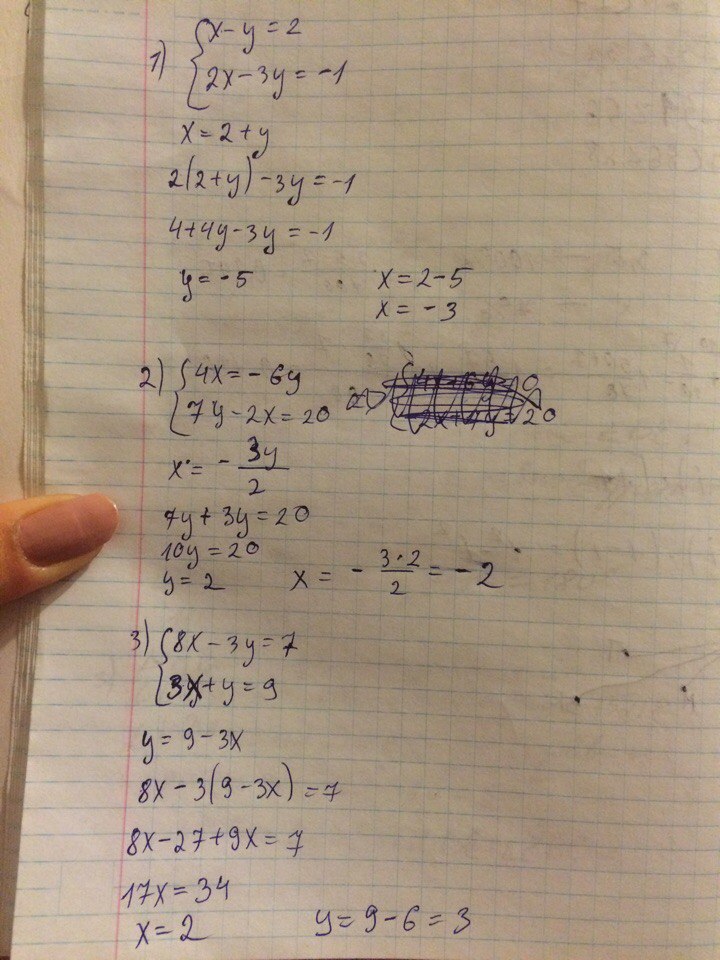 1) { x - y = 2
2x - 3y = -1
x = 2 + y
2(2+y) - 3y = -1
4 + 4y - 3y = -1
y = -5 x = 2 - 5
x = -3
2) { 4x = - 6y
7y - 2x = 20
x = - 3y/2
7y + 3y = 20
10y = 20
y = 2 x = - 3·2/2 = - 2
3) { 8x - 3y = 7
3x + y = 9
y = 9 - 3x
8x - 3(9 - 3x) = 7
8x - 27 + 9x = 7
17x = 34
x = 2 y = 9 - 6 = 3